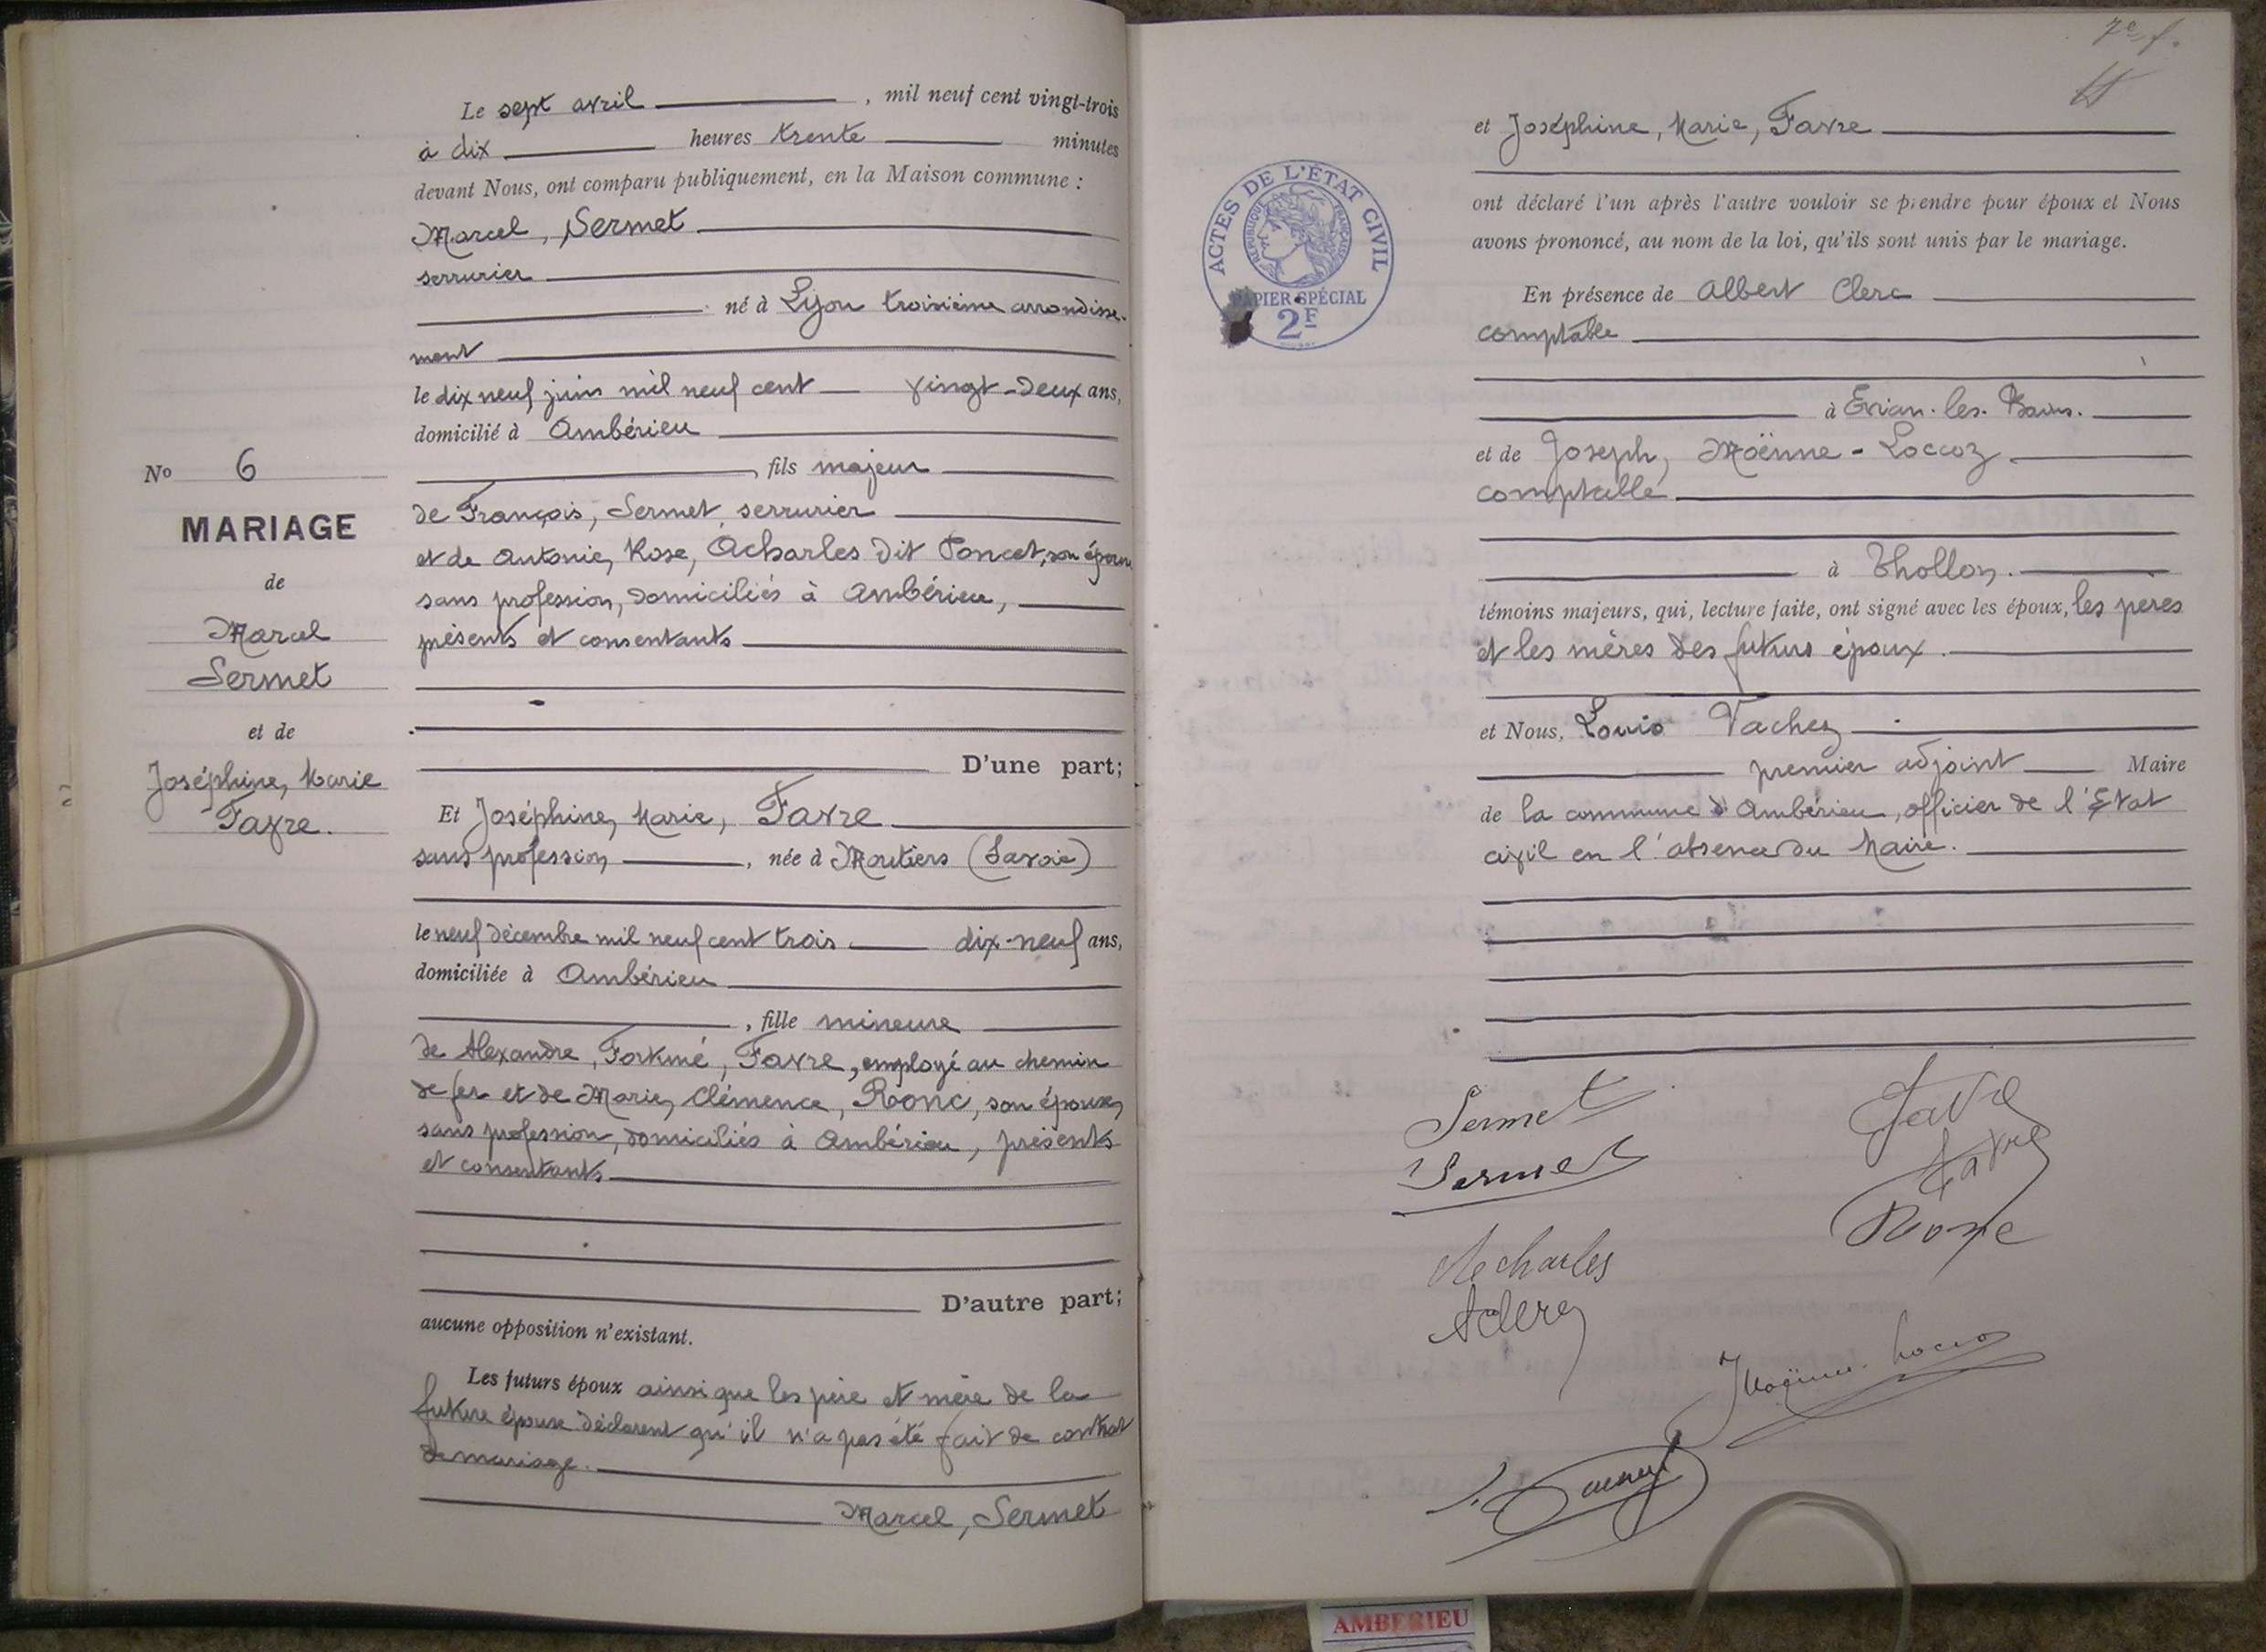 Le sept avril , mil neuf cent vingt-trois
à dix heures trente minutes
devant Nous, ont comparu publiquement, en la Maison commune :
Marcel, Sermet
serrurier
né à Lyon troisième arrondisse-
ment
le dix neuf juin mil neuf cent vingt-deux ans,
domicilié à Ambérieu
, fils majeur
de François, Sermet, serrurier
et de Antonie, Rose, Acharles dit Poncet, son épouse
sans profession, domiciliés à Ambérieu,
présents et consentants
D'une part;
Et Joséphine, Marie, Favre
sans profession , née à Moutiers (Savoie)
le neuf décembre mil neuf cent trois dix-neuf ans,
domiciliée à Ambérieu
, fille mineure
de Alexandre, Fortuné, Favre, employé au chemin
de fer et de Marie, Clémence, Ronc, son épouse,
sans profession, domiciliés à Ambérieu, présents
et consentants
D'autre part;
aucune opposition n'existant.
Les futurs époux ainsi que les père et mère de la
future épouse déclarent qu'il n'a pas été fait de contrat
de mariage.
Marcel, Sermet
No 6
MARIAGE
de
Marcel
Sermet
et de
Joséphine, Marie
Favre.
7e f.
et Joséphine, Marie, Favre
ont déclaré l'un après l'autre vouloir se prendre pour époux et Nous
avons prononcé, au nom de la loi, qu'ils sont unis par le mariage.
En présence de Albert Clerc
comptable
à Evian-les-Bains.
et de Joseph, Moënne-Loccoz
comptable
à Thollon.
témoins majeurs, qui, lecture faite, ont signé avec les époux, les pères
et les mères des futurs époux.
et Nous, Louis Vachez
premier adjoint Maire
de la commune d'Ambérieu, officier de l'Etat
civil en l'absence du Maire.
ACTES DE L'ÉTAT CIVIL
RÉPUBLIQUE FRANÇAISE
PAPIER SPÉCIAL
2F
Sermet
Favre
Sermet
Favre
Ronc
Acharles
A Clerc
J Moënne-Loccoz
AMBERIEU